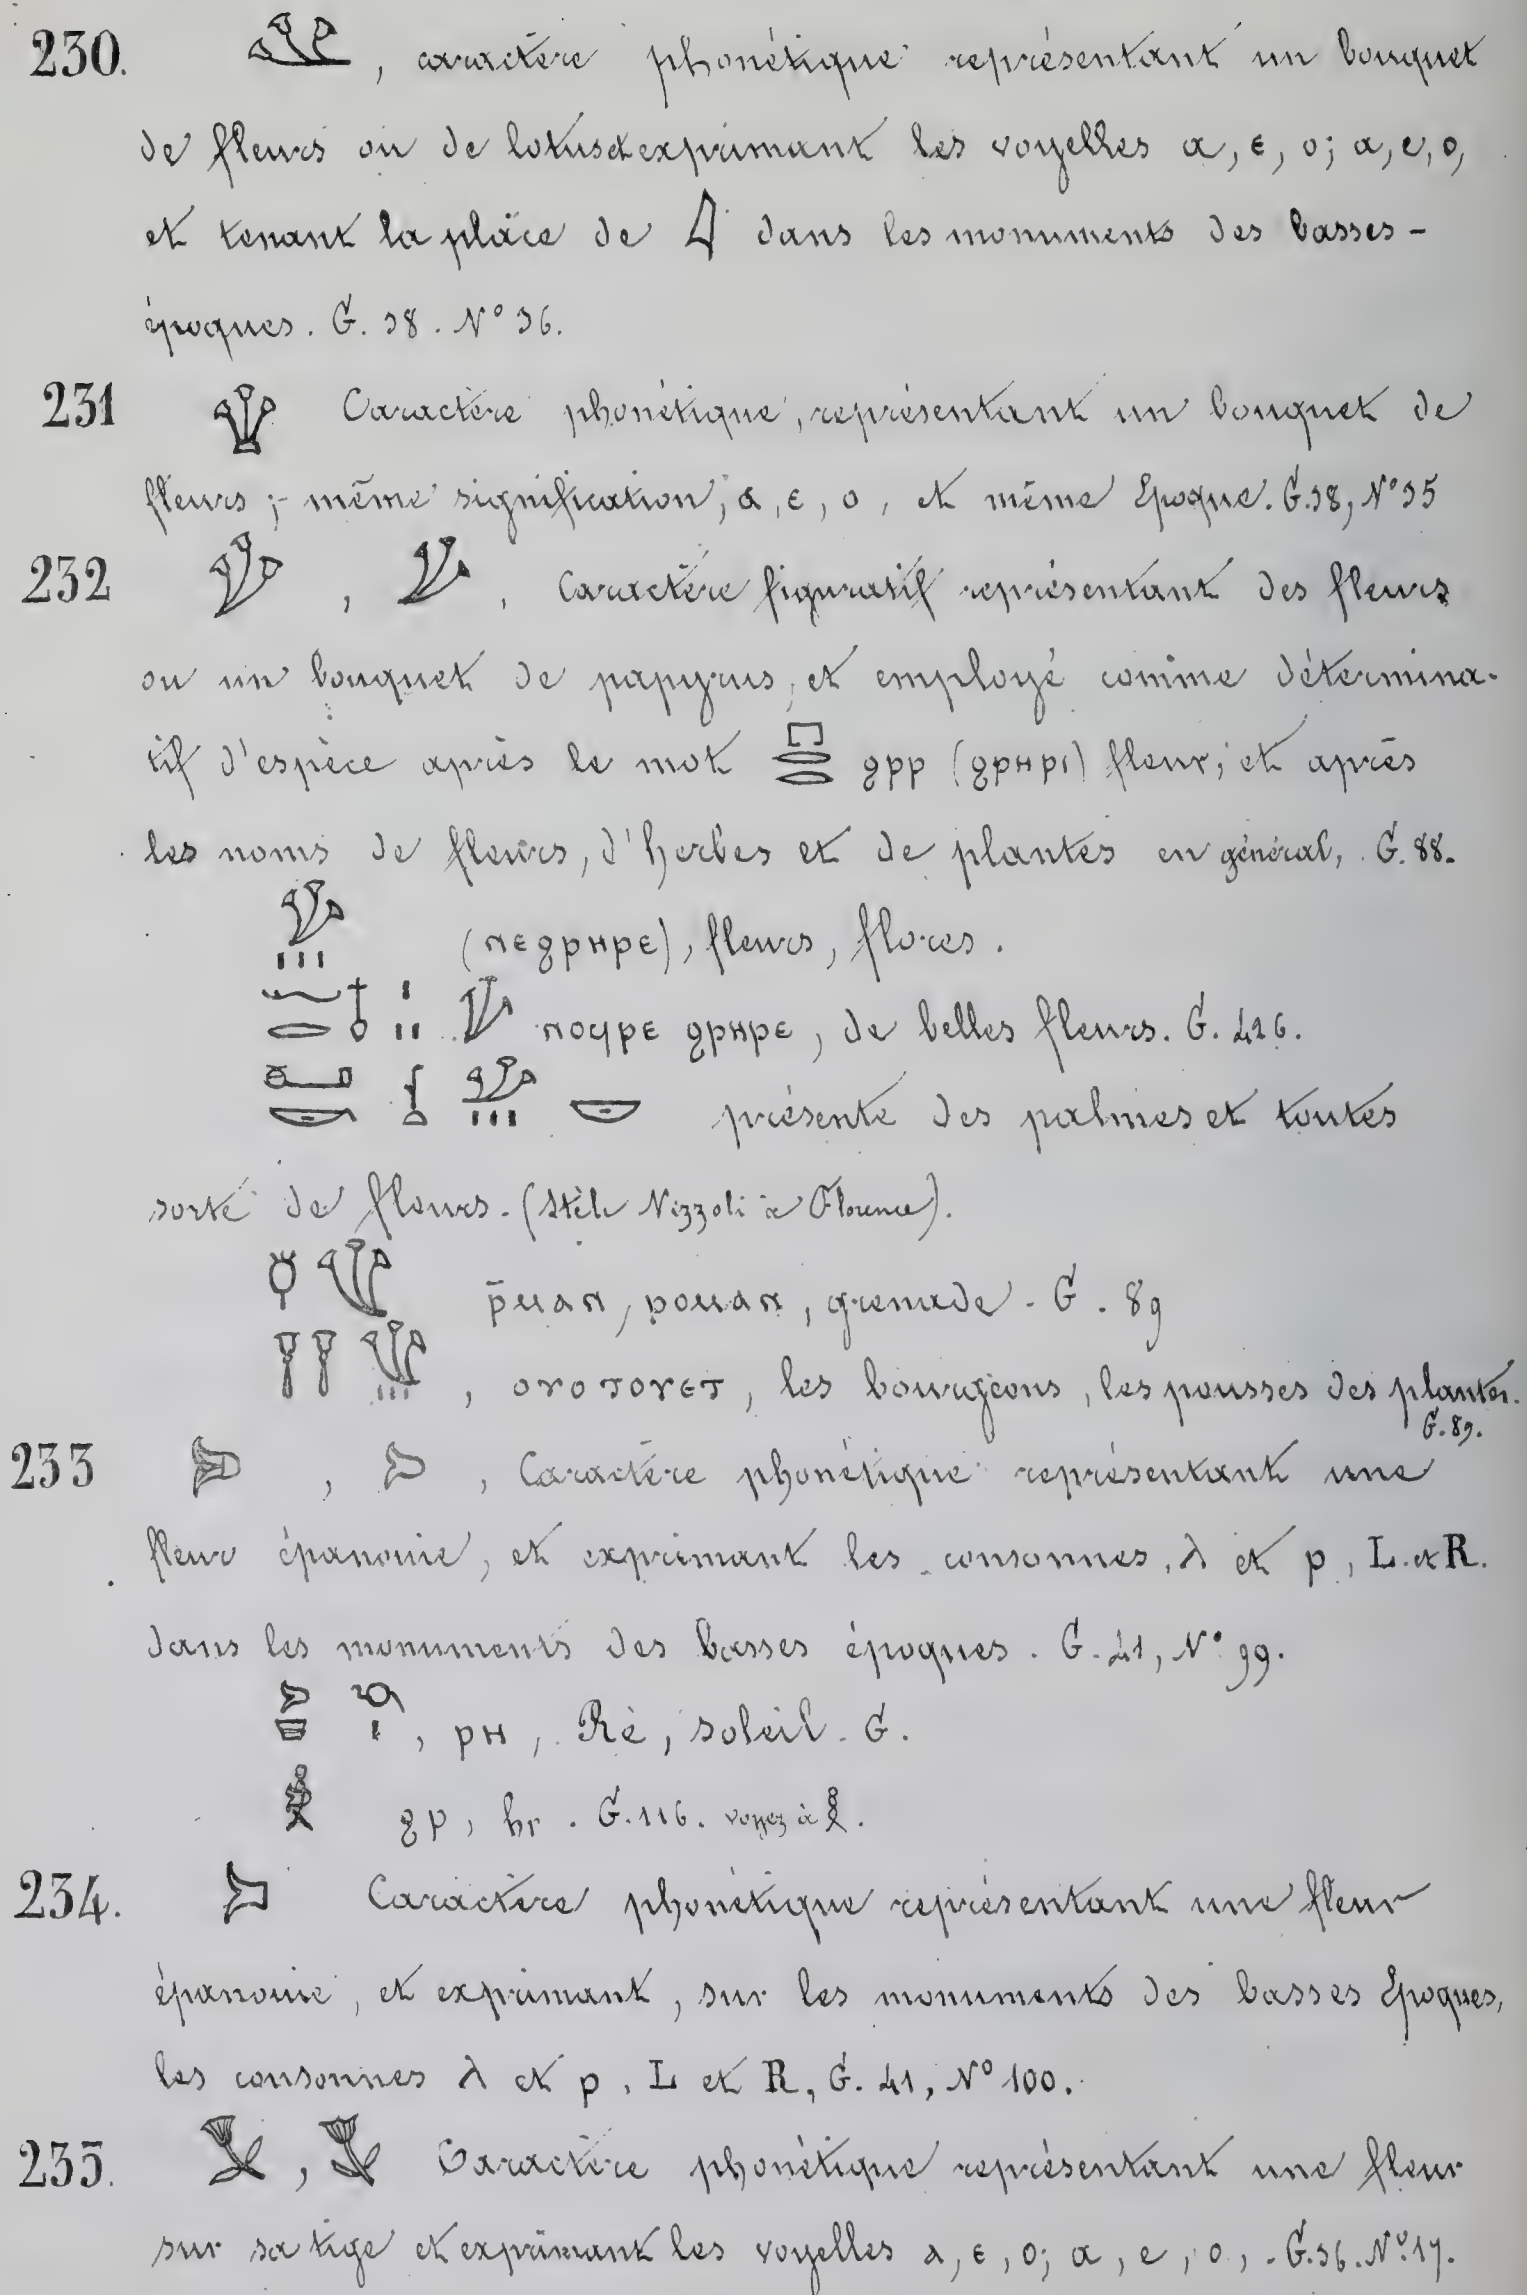 230. , caractère phonétique représentant un bouquet
de fleurs ou de lotus et exprimant les voyelles ⲁ, ⲉ, ⲟ; a, e, o,
et tenant la place de 𓇋 dans les monuments des basses-
époques. G. 38. N° 36.
231 Caractère phonétique, représentant un bouquet de
fleurs; même signification, ⲁ, ⲉ, ⲟ, et même Epoque. G. 38, N° 35
232 , , Caractère figuratif représentant des fleurs
ou un bouquet de papyrus, et employé comme détermina-
tif d'espèce après le mot 𓉔𓂋𓂋 ϩⲣⲣ (ϩⲣⲏⲣⲓ) fleur; et après
les noms de fleurs, d'herbes et de plantes en général, G. 88.
(ⲛⲉϩⲣⲏⲣⲉ), fleurs, flores.
ⲛⲟϥⲣⲉ ϩⲣⲏⲣⲉ, de belles fleurs. G. 426.
présente des palmes et toutes
sorte de fleurs. (Stèle Nizzoli à Florence).
ⲣ̄ⲙⲁⲛ, ⲣⲟⲙⲁⲛ, grenade. G. 89
, ⲟⲩⲟⲧⲟⲩⲉⲧ, les bourgeons, les pousses des plantes.
G. 89.
233 , , Caractère phonétique représentant une
fleur épanouie, et exprimant les consonnes, ⲗ et ⲣ, L. et R.
dans les monuments des basses époques. G. 41, N° 99.
, ⲣⲏ, Rè, soleil. G.
ϩⲣ, hr. G. 116. voyez à .
234. Caractère phonétique représentant une fleur
épanouie, et exprimant, sur les monuments des basses Epoques,
les consonnes ⲗ et ⲣ, L et R, G. 41, N° 100.
235. , Caractère phonétique représentant une fleur
sur sa tige et exprimant les voyelles ⲁ, ⲉ, ⲟ; a, e, o, - G. 36. N° 17.